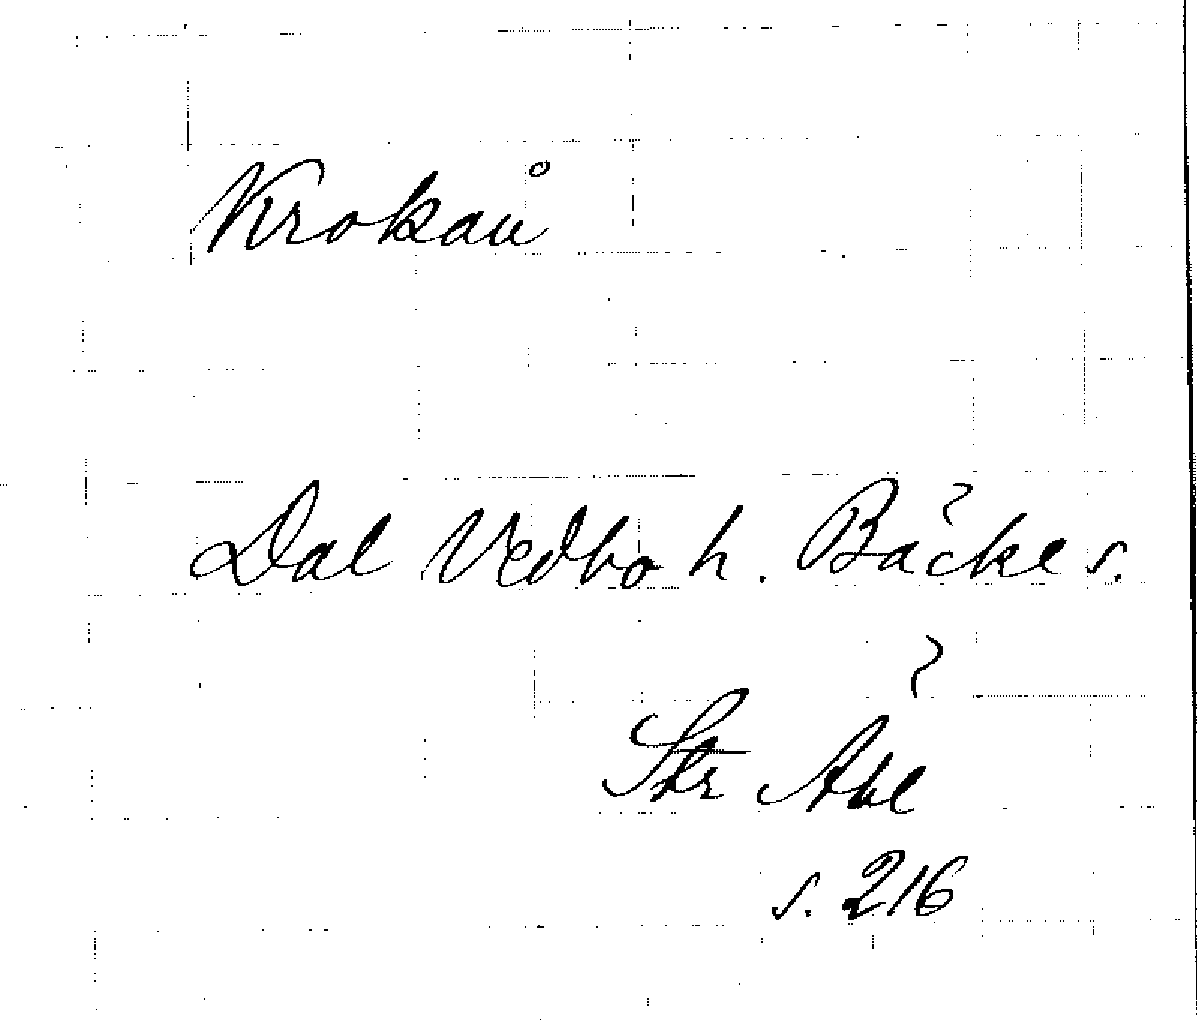 Krokån
Dal Vedbo h. Bäcke s.
Str Äbl
s. 216